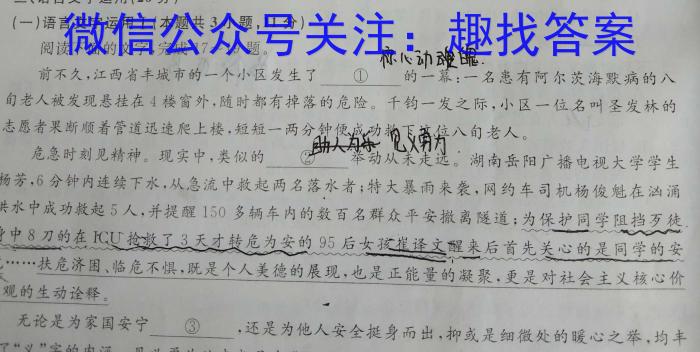 (一)语言文字运用Ⅰ(本题共3小题,11分)
微信公众号关注：趣找答案
阅读下面的文字,完成17～19题。
惊心动魄
前不久,江西省丰城市的一个小区发生了 ① 的一幕:一名患有阿尔茨海默病的八
旬老人被发现悬挂在4楼窗外,随时都有掉落的危险。千钧一发之际,小区一位名叫圣发林的
志愿者果断顺着管道迅速爬上楼,短短一两分钟便成功救下这位八旬老人。
助人为乐 见义勇为
危急时刻见精神。现实中,类似的 ② 举动从未走远。湖南岳阳广播电视大学学生
杨芳,6分钟内连续下水,从急流中救起两名落水者;特大暴雨来袭,网约车司机杨俊魁在汹涌
洪水中成功救起5人,并提醒150多辆车内的数百名群众平安撤离隧道;为保护同学阻挡歹徒
身中8刀的在ICU抢救了3天才转危为安的95后女孩崔译文醒来后首先关心的是同学的安
……扶危济困、临危不惧,既是个人美德的展现,也是正能量的凝聚,更是对社会主义核心价
观的生动诠释。
无论是为家国安宁 ③ ,还是为他人安全挺身而出,抑或是细微处的暖心之举,均丰